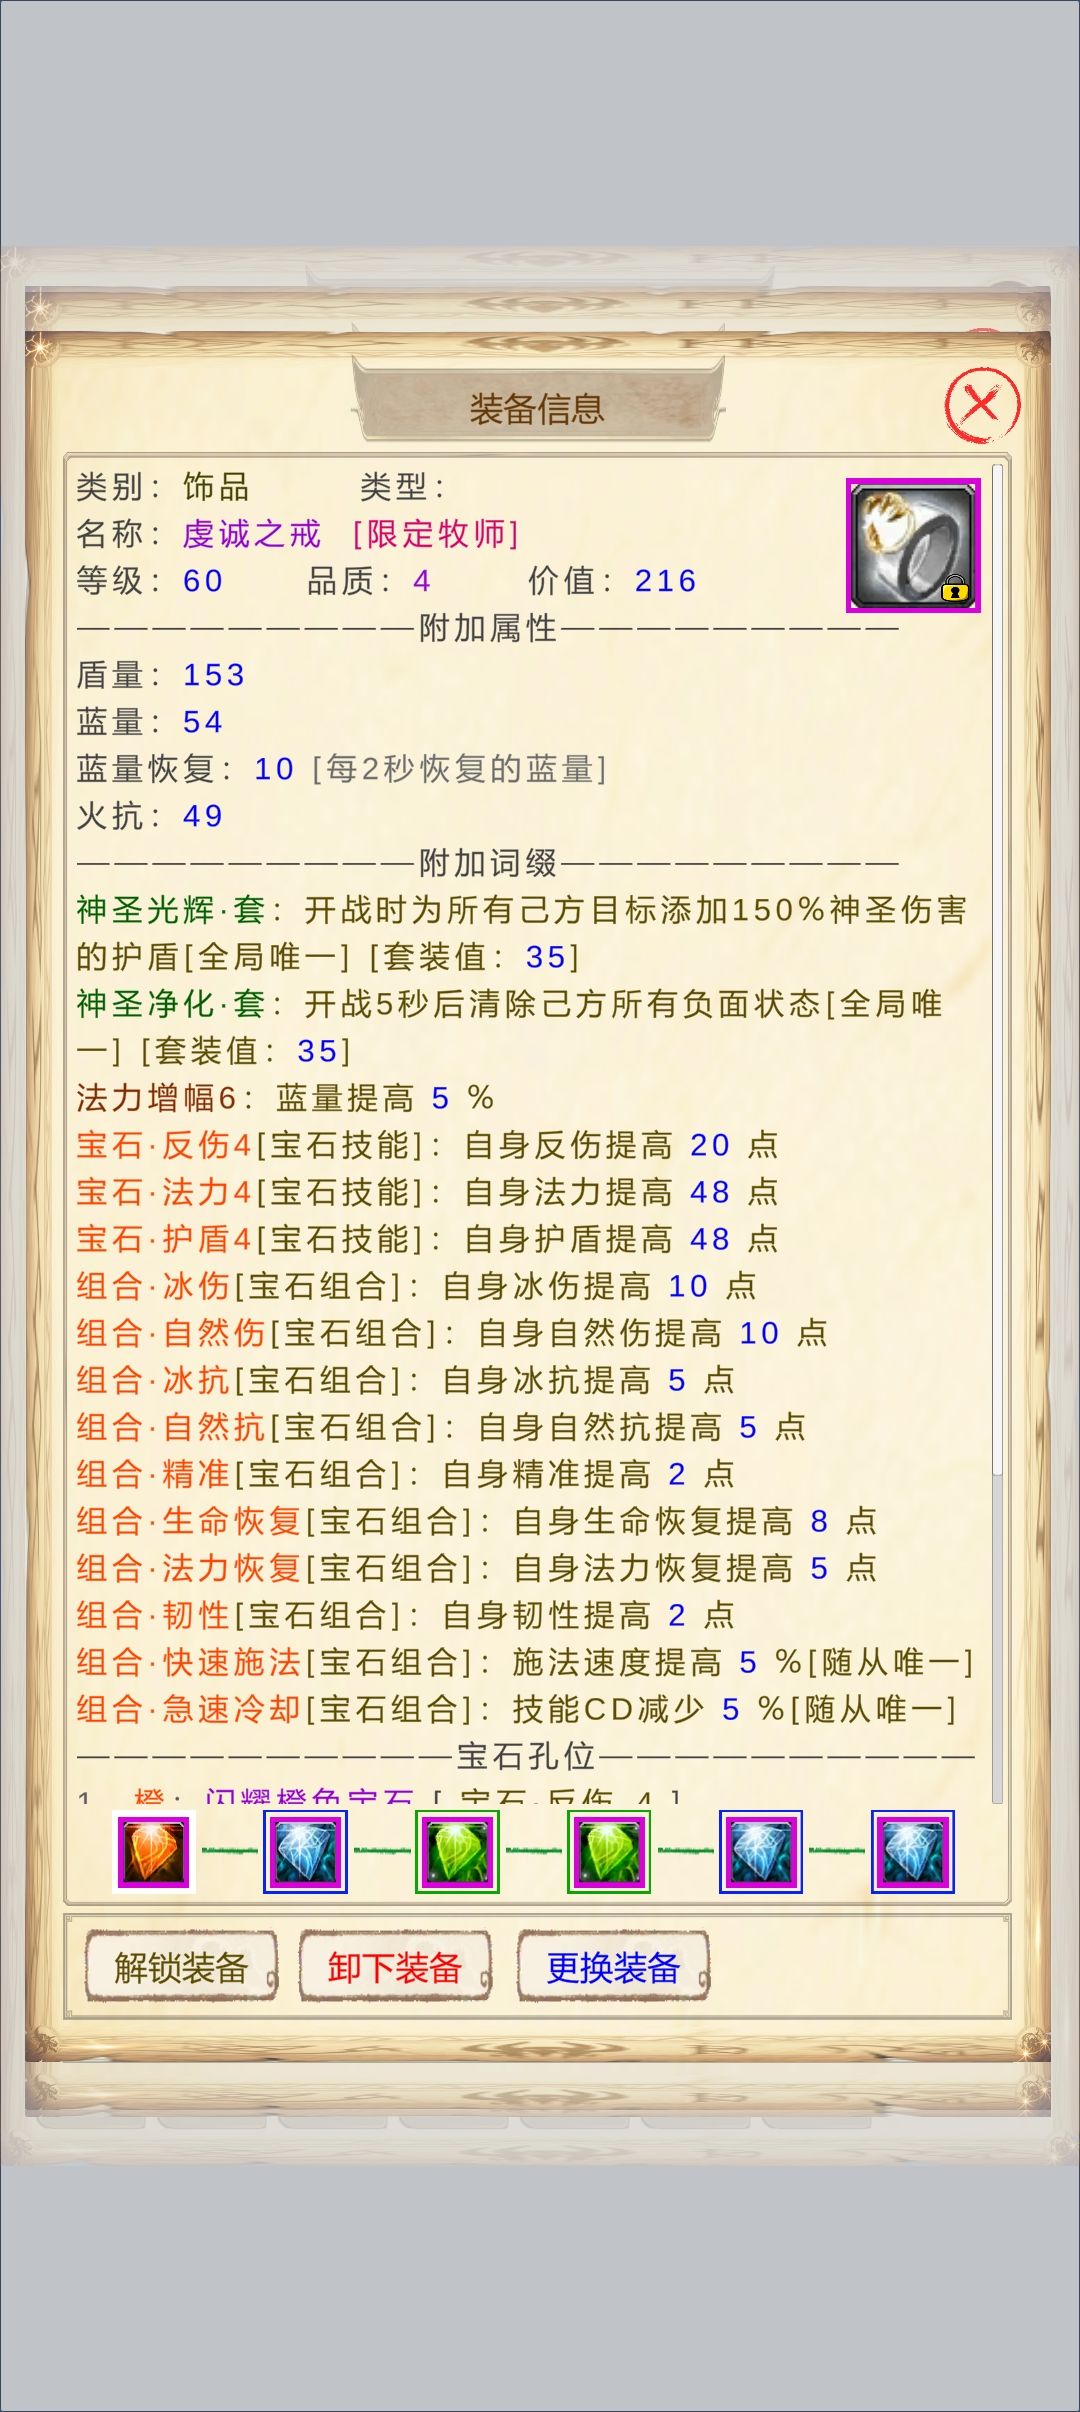 装备信息
类别: 饰品 类型:
名称: 虔诚之戒 [限定牧师]
等级: 60 品质: 4 价值: 216
—————————附加属性—————————
盾量: 153
蓝量: 54
蓝量恢复: 10 [每2秒恢复的蓝量]
火抗: 49
—————————附加词缀—————————
神圣光辉·套: 开战时为所有己方目标添加150%神圣伤害
的护盾[全局唯一] [套装值: 35]
神圣净化·套: 开战5秒后清除己方所有负面状态[全局唯
一] [套装值: 35]
法力增幅6: 蓝量提高 5 %
宝石·反伤4[宝石技能]: 自身反伤提高 20 点
宝石·法力4[宝石技能]: 自身法力提高 48 点
宝石·护盾4[宝石技能]: 自身护盾提高 48 点
组合·冰伤[宝石组合]: 自身冰伤提高 10 点
组合·自然伤[宝石组合]: 自身自然伤提高 10 点
组合·冰抗[宝石组合]: 自身冰抗提高 5 点
组合·自然抗[宝石组合]: 自身自然抗提高 5 点
组合·精准[宝石组合]: 自身精准提高 2 点
组合·生命恢复[宝石组合]: 自身生命恢复提高 8 点
组合·法力恢复[宝石组合]: 自身法力恢复提高 5 点
组合·韧性[宝石组合]: 自身韧性提高 2 点
组合·快速施法[宝石组合]: 施法速度提高 5 %[随从唯一]
组合·急速冷却[宝石组合]: 技能CD减少 5 %[随从唯一]
——————————宝石孔位——————————
1 橙: 闪耀橙色宝石 [ 宝石·反伤 4 ]
解锁装备 卸下装备 更换装备